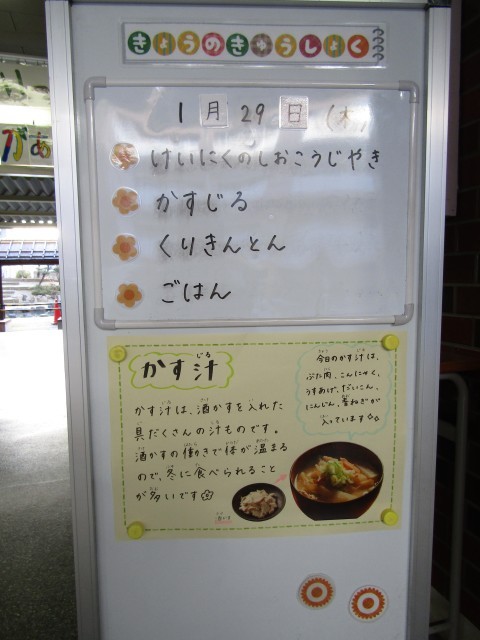 きょうのきゅうしょく
1月29日(木)
けいにくのしおこうじやき
かすじる
くりきんとん
ごはん
かす汁
じる
今日のかす汁は、
ぶた肉、こんにゃく、
うすあげ、だいこん、
にんじん、青ねぎが
入っています
かす汁は、酒かすを入れた
具だくさんの汁ものです。
酒かすの働きで体が温まる
ので、冬に食べられること
が多いです